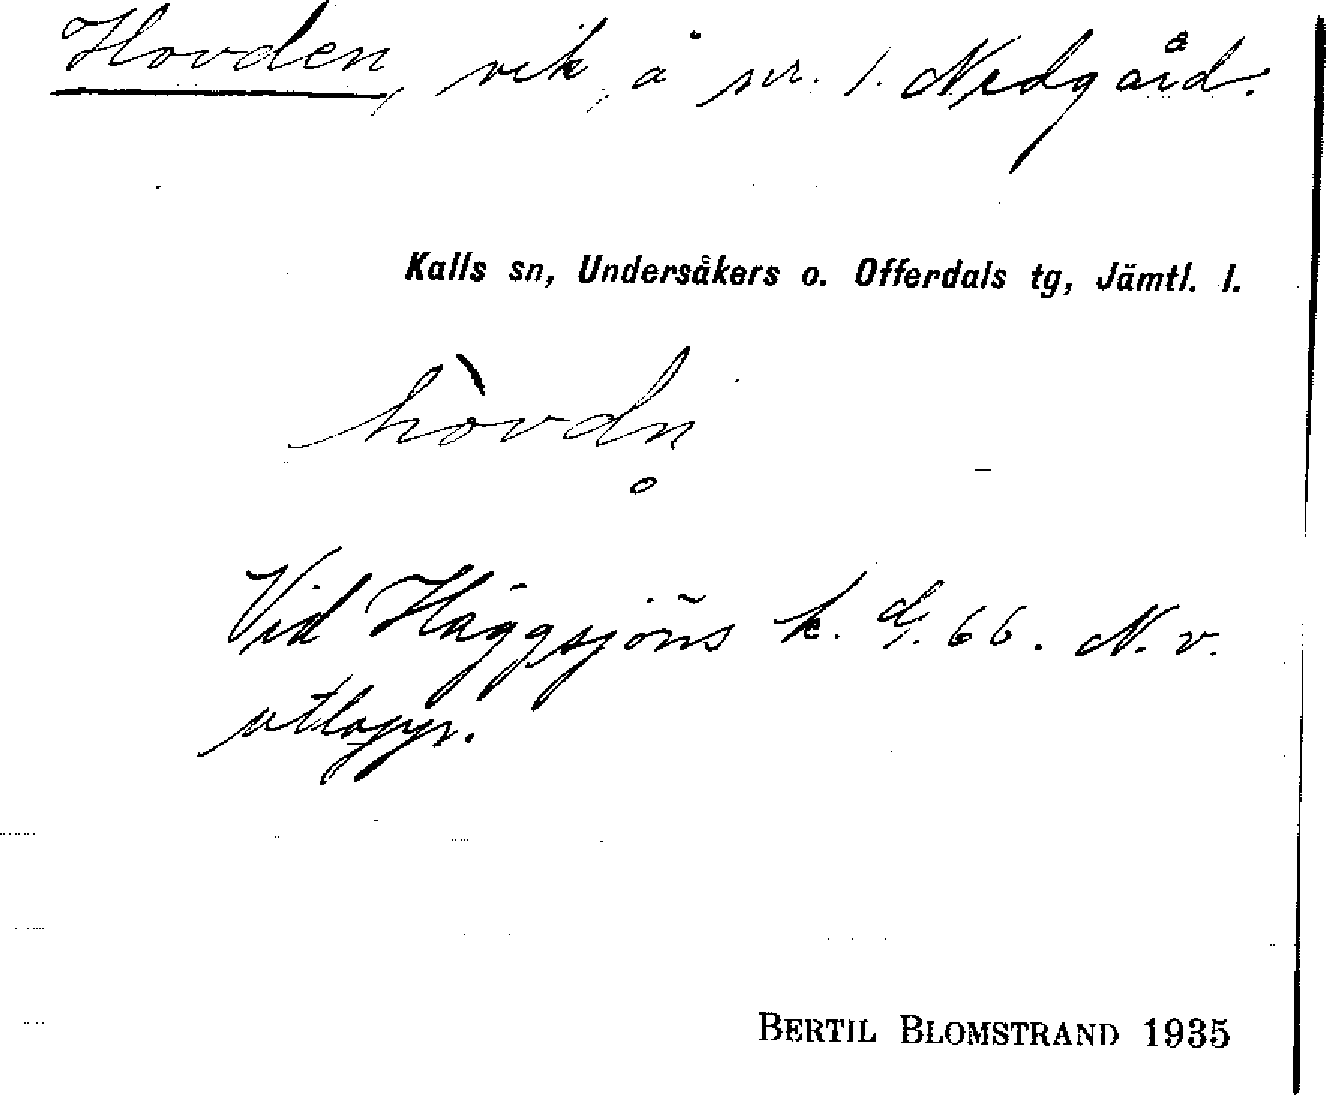 Hovden, vik, å nr. 1. Nedgård.
Kalls sn, Undersåkers o. Offerdals tg, Jämtl. l.
hòvdn̥
Vid Häggsjöns k. 66. N. v.
utlopp.
BERTIL BLOMSTRAND 1935